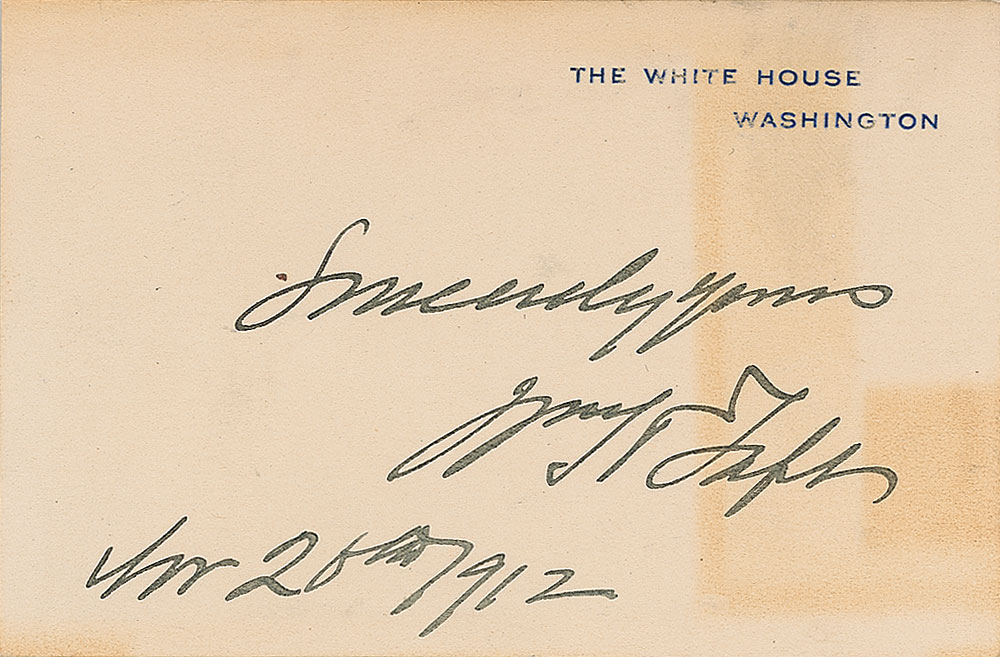 THE WHITE HOUSE
WASHINGTON
Sincerely yours
Wm H Taft
Nov 26th 1912